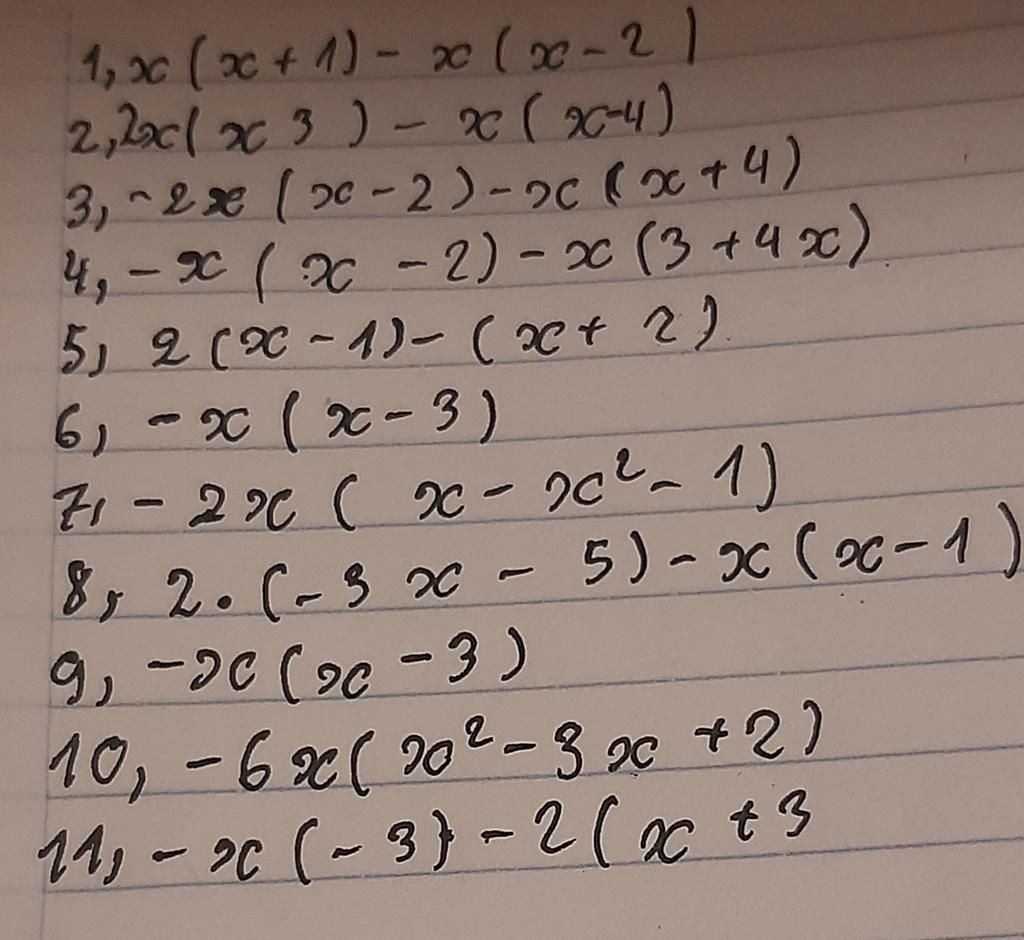 1, x(x+1) - x(x-2)
2, 2x(x 3) - x(x-4)
3, -2x(x-2)-x(x+4)
4, -x(x-2)-x(3+4x)
5, 2(x-1)-(x+2)
6, -x(x-3)
7, -2x(x-x²-1)
8, 2·(-3x-5)-x(x-1)
9, -x(x-3)
10, -6x(x²-3x+2)
11, -x(-3)-2(x+3